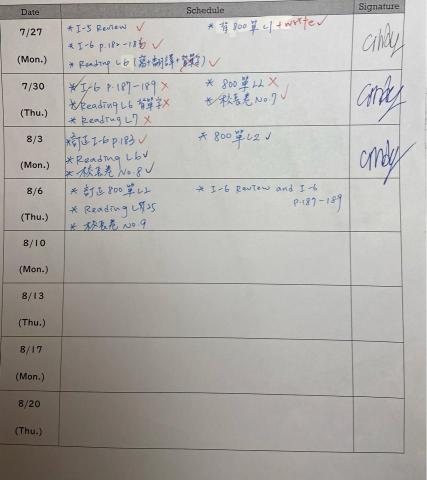 Date Schedule Signature
7/27 (Mon.)
* I-5 Review ✓ * 背800單L1 + write ✓
* I-6 p.182-183 ✓
* Reading L6 (寫+翻譯+背單字) ✓
cindy
7/30 (Thu.)
* I-6 p.187-189 × * 800單L2 ×
* Reading L6 背單字 × * 秋卷 No.7 ✓
* Reading L7 ×
cindy
8/3 (Mon.)
* 訂正 I-6 p.183 ✓ * 800單L2 ✓
* Reading L6 ✓
* 卷 No.8 ✓
cindy
8/6 (Thu.)
* 訂正800單L2 * I-6 Review and I-6
p.187-189
* Reading
* 卷 No.9
8/10
(Mon.)
8/13
(Thu.)
8/17
(Mon.)
8/20
(Thu.)